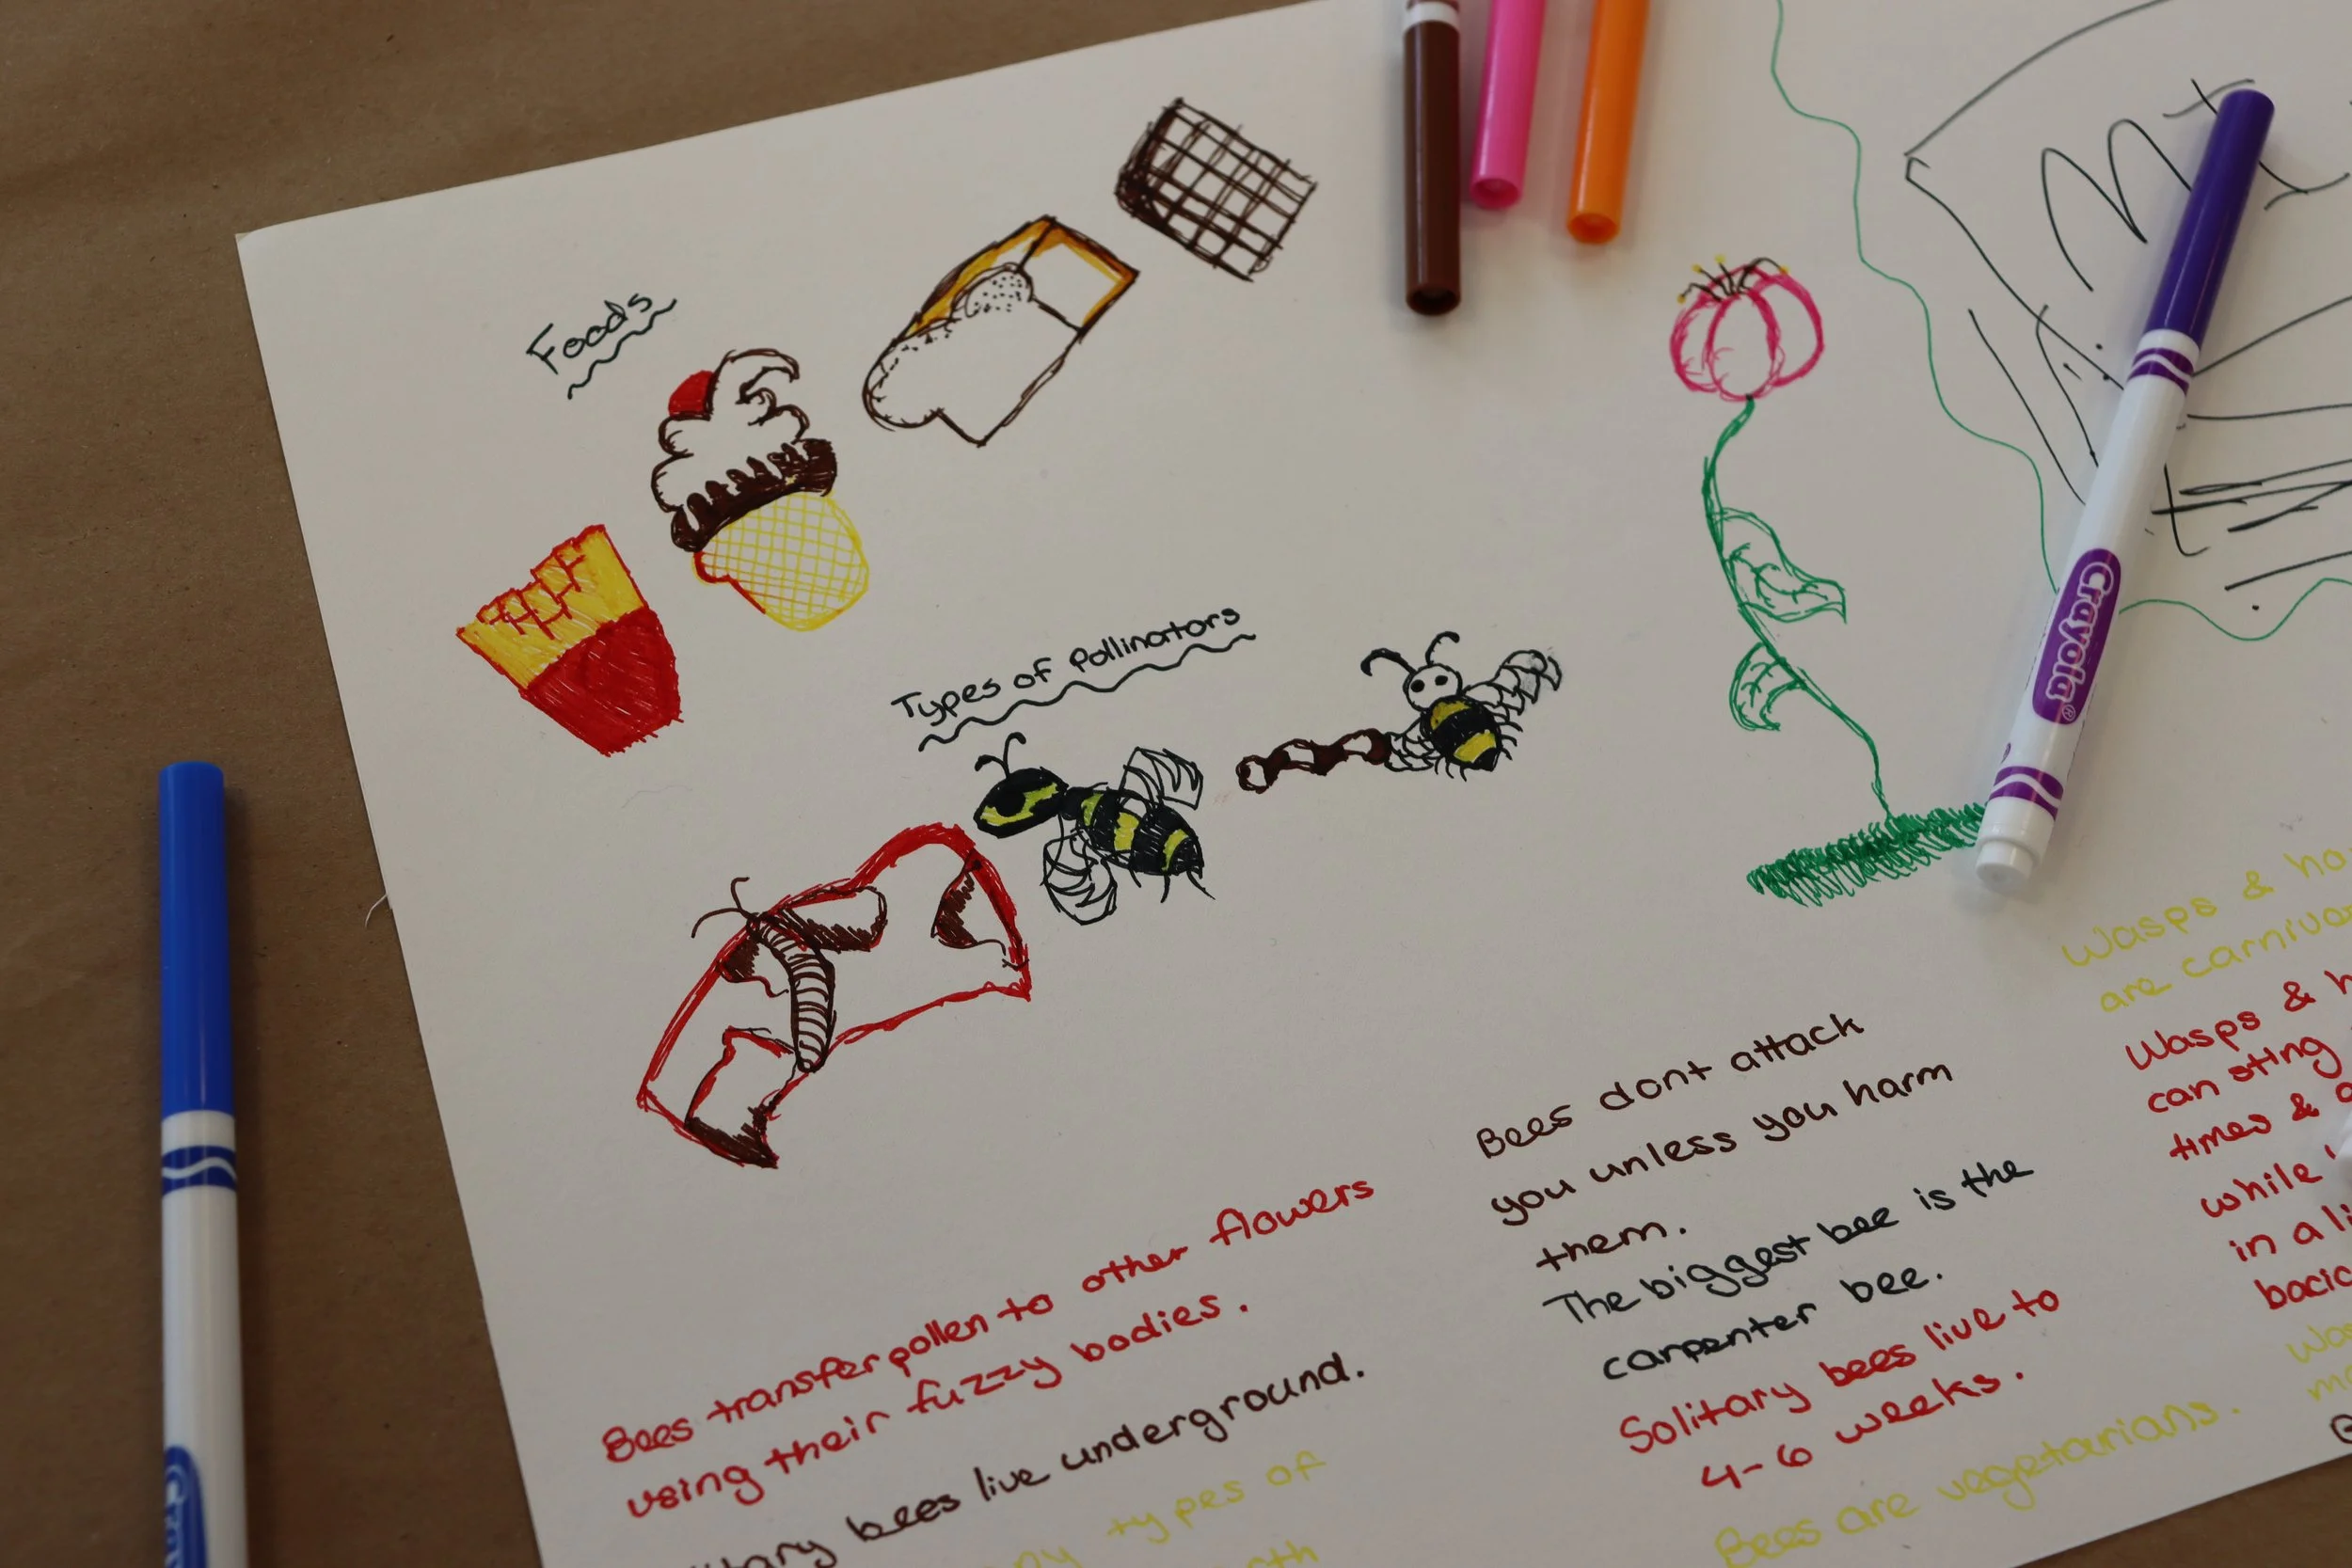 Foods
Types of Pollinators
Bees transfer pollen to other flowers
using their fuzzy bodies.
bees live underground.
types of
Bees dont attack
you unless you harm
them.
The biggest bee is the
carpenter bee.
Solitary bees live to
4-6 weeks.
Bees are vegetarians.
Wasps &
are
Wasps &
can sting
times &
while
in a
Crayola